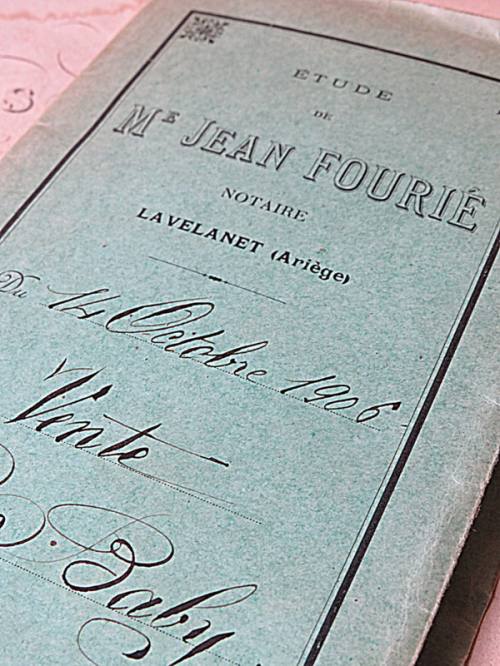 ÉTUDE
DE
Mᴱ JEAN FOURIÉ
NOTAIRE
LAVELANET (Ariège)
Du 14 Octobre 1906
Vente
Baby